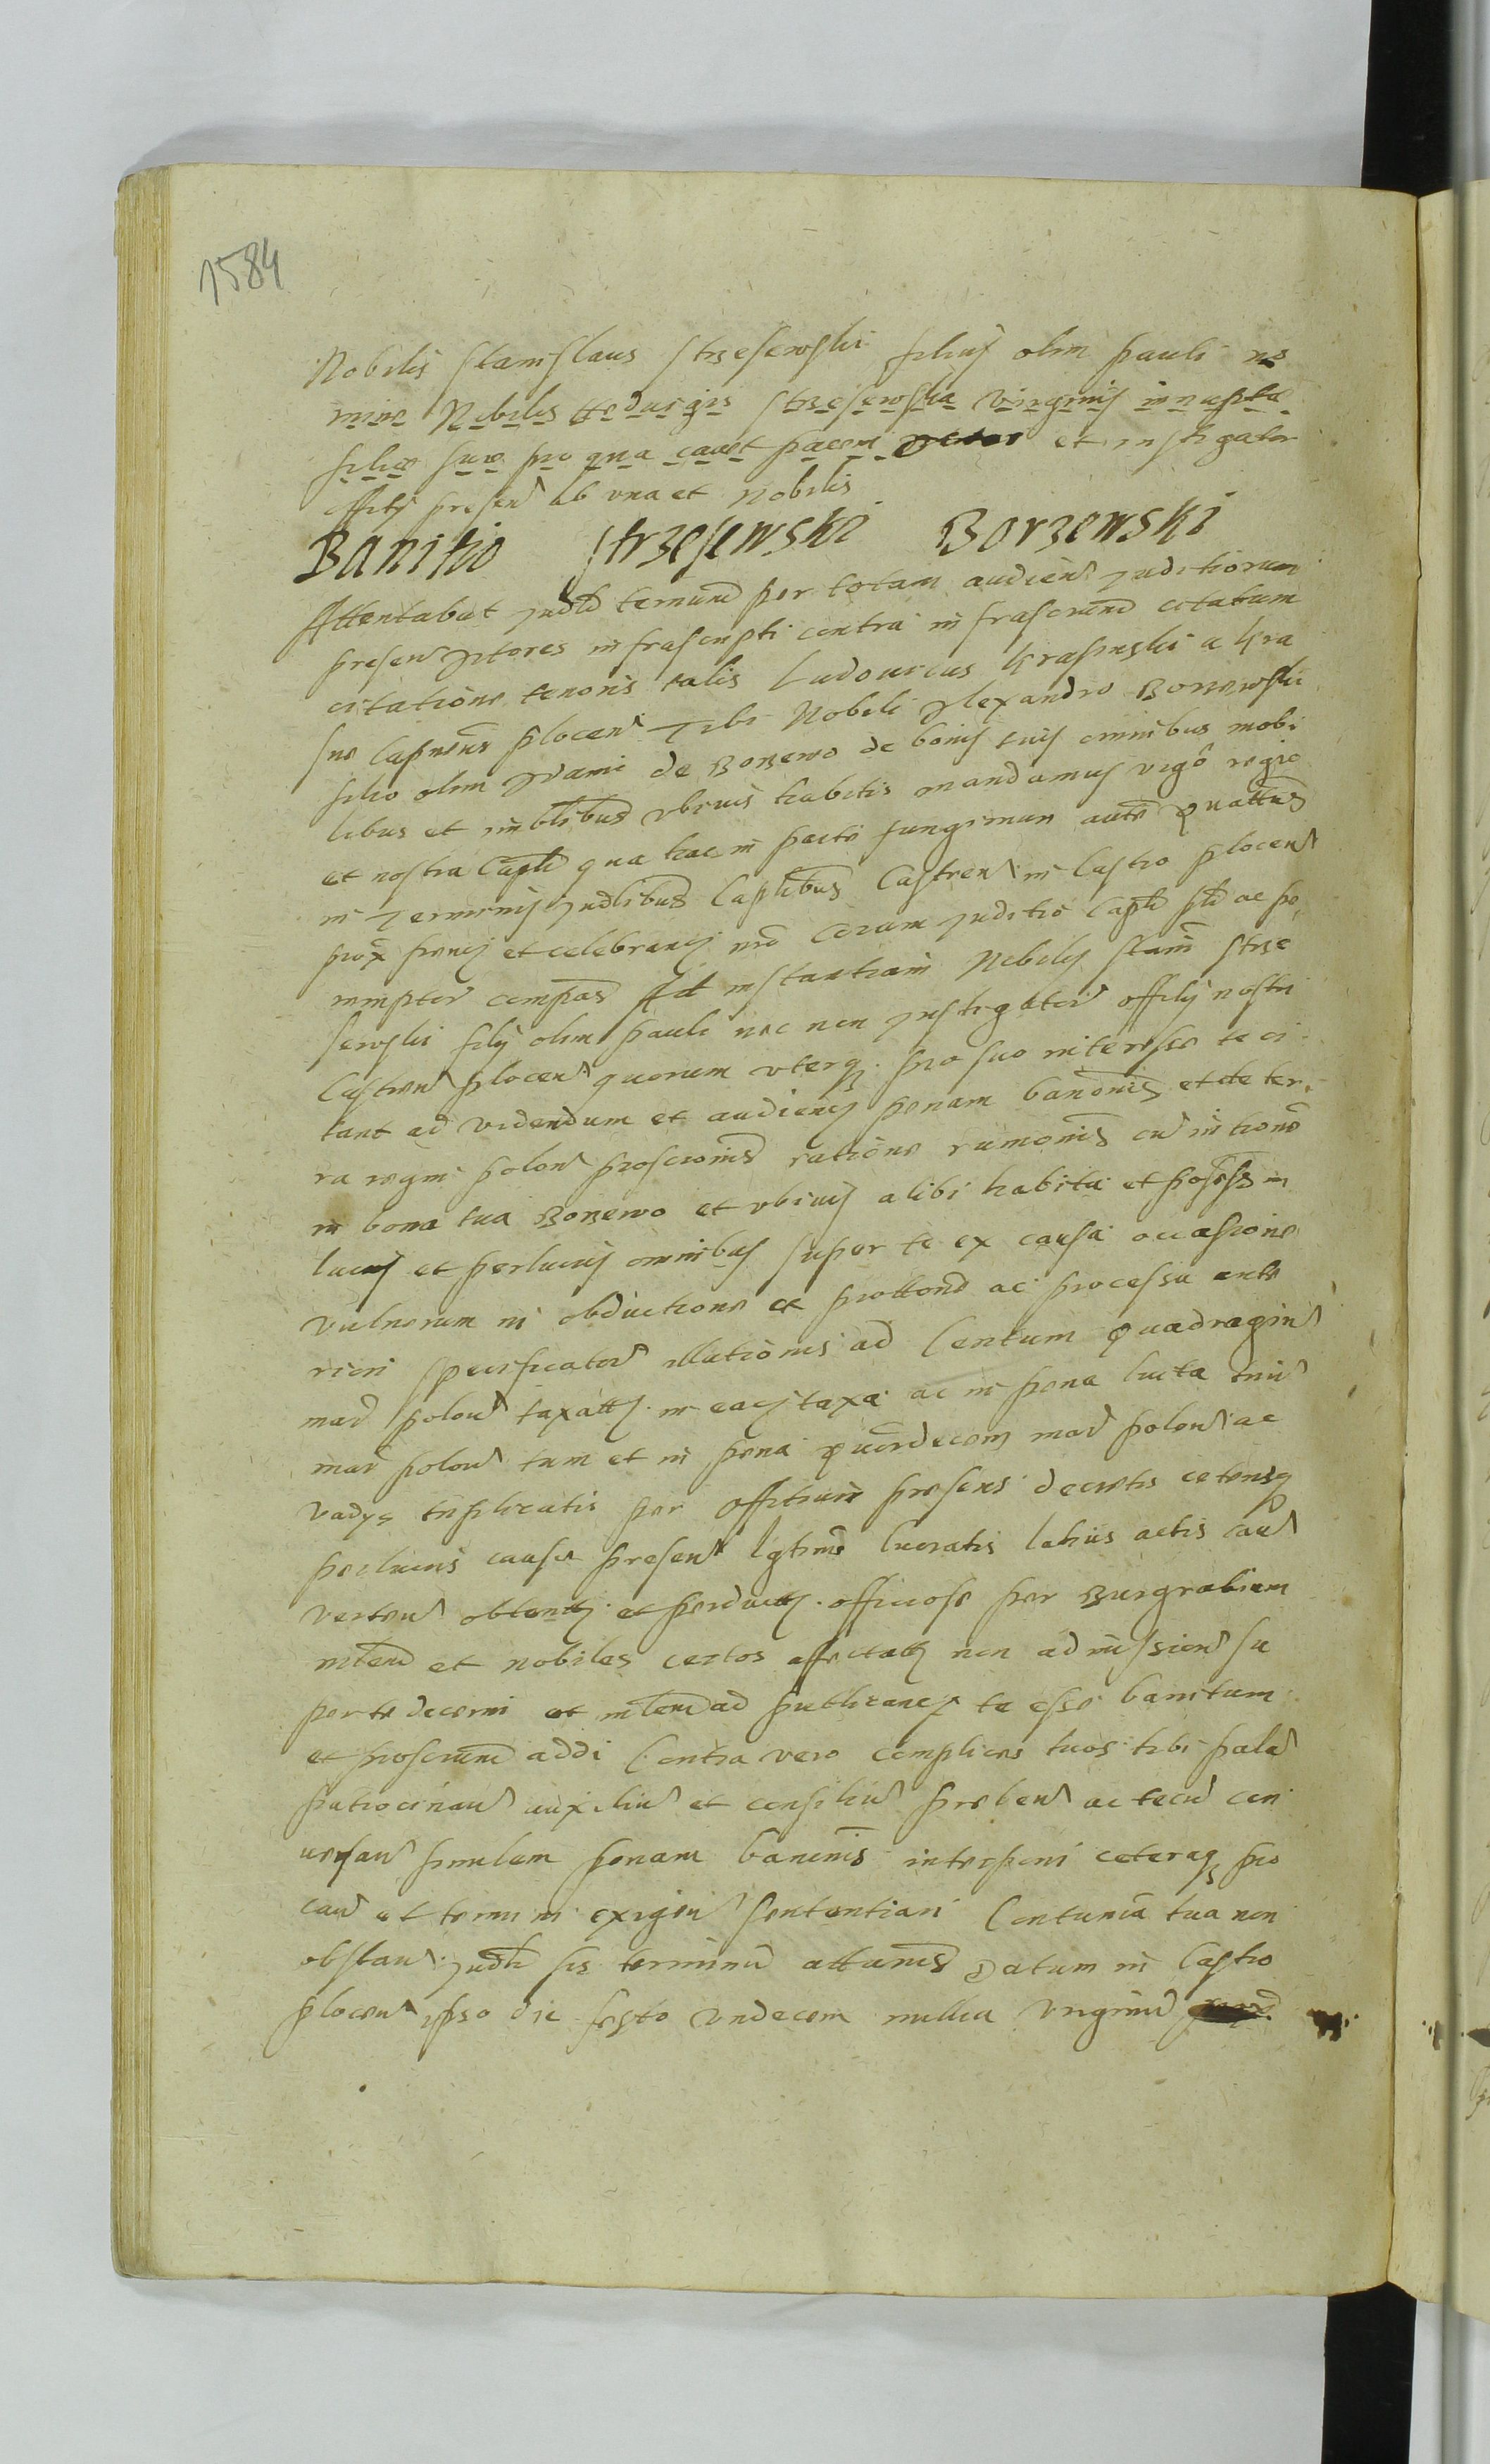 1584
Nobilis Stanislaus Strzesewski filius olim Pauli no
mine Nobilis Hedwigis Strzesewska virginis innupte
filie sue pro qua cavet pacem et instigator
officij presen ab una et Nobilis
Banitio Strzesewski Borzewski
Attentabat judl terminum per totam audien juditiorum
presen Actores infrascripti contra infrascriptum citatum
citatione tenoris talis Ludovicus Krasinski a Kra
sne Capneus plocen Tibi Nobili Alexandro Borzewski
filio olim Adami de Borzewo de bonis tuis omnibus mobi
libus et imblibus ubivis habitis mandamus vigore regie
et nostra Capli qua hac in parte fungimur aucte quatinus
in Terminis Judlibus Caplibus Castren in Castro plocen
prox fiendis et celebrandis coram juditio Capli ac pe
remptor compas Ad instantiam Nobilis Stani Strze
sewski filij olim Pauli nec non Instigator officij nostri
Castren plocen quorum uterq pro suo interesse te ci
tant ad videndum et audiendum penam bannonis et de ter
ra regni polon proscriptionis ratione rumonis
in bona tua Borzewo et ubivis alibi habita et possess in
lucris et perlucris omnibus super te ex causa occasione
vulnerum in obductione et prottone ac processu ante
riori specificator illationis ad Centum quadragin
mar polon taxatis in eadem taxa ac in pena lucta trium
mar polon tum et in pena quordecem mar polon ac
vadys triplicatis per officium presens decretis ceterisq
perlucris cause presen lgtime lucratis latius actis cau
verten obtentis et perductis officiose per Burgrabium
mlem et nobiles certos affectatis non admissionem su
per te decerni et mlem ad publicandum te esse banitum
et proscriptum addi Contra vero complices tuos tibi palam
patrocinan auxilium et consilium preben ac tecum con
versan similem penam bannonis interponi ceteraq pro
cau et termini exigen sententiari Contumatia tua non
obstan Judli sis terminum attentaturus Datum in Castro
plocen ipso die festo undecem millia virginum